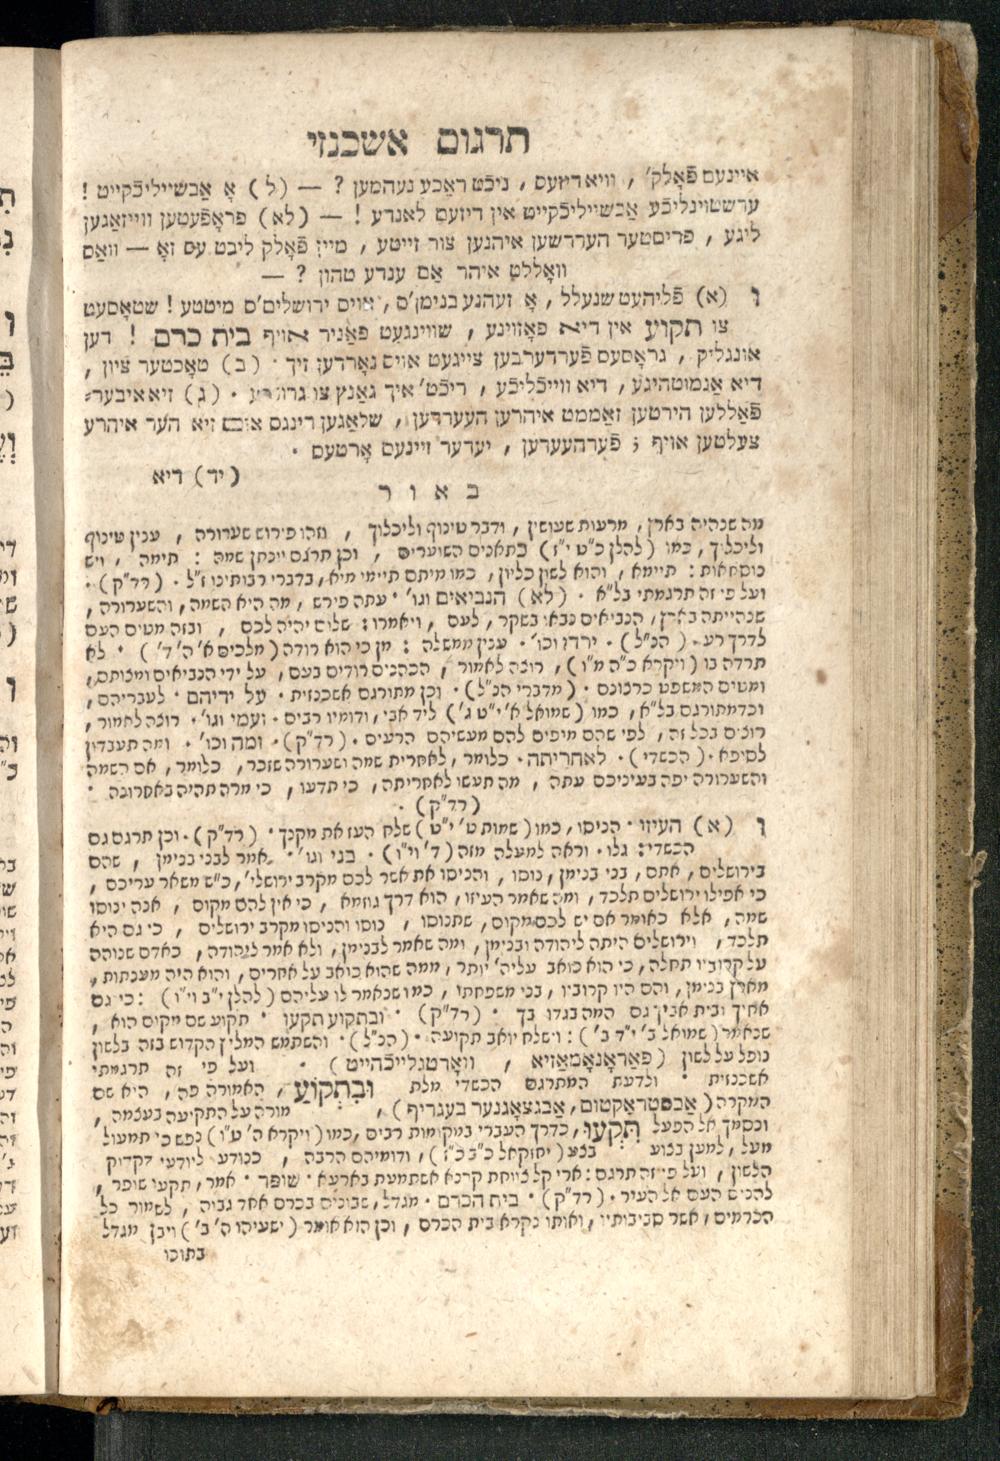 תרגום אשכנזי
איינעם פֿאָלק׳, וויא דיזעס, ניכֿט ראַכע נעהמען? — (ל) אָ אַבשייליכֿקייט!
ערשטוינליכֿע אַבשייליכֿקייט אין דיזעם לאנדע! — (לא) פראָפֿעטען ווייזאַגען
ליגע, פריסטער הערדשען איהנען צור זייטע, מיין פֿאָלק ליבט עס זאָ — וואַס
וואָללט איהר אַם ענדע טהון? —
ו (א) פֿליהעט שנעלל, אָ זעהנע בנימן׳ם, אויס ירושלים׳ס מיטטע! שטאָסעט
צו תקוע אין דיא פאָזוינע, שווינגעט פאַניר אויף בית כרם! דען
אונגליק, גראָסעס פֿערדערבען צייגעט אויס נאָררען זיך. (ב) טאָכטער ציון,
דיא אַנמוטהיגע, דיא ווייכֿליכֿע, ריכֿט׳ איך גאַנץ צו גרונדע. (ג) זיא איבער־
פֿאַללען הירטען זאַממט איהרען העערדען, שלאַגען רינגס אום זיא הער איהרע
צעלטען אויף; פֿערהעערען, יעדער זיינעם אָרטעס.
(יד) דיא
באור
מה שנהיה בארץ, מרעות שעושין, ודבר טינוף וליכלוך, וזהו פירוש שערורה, ענין טינוף
וליכלוך, כמו (להלן כ״ט י״ז) כתאנים השוערים, וכן תרגם יונתן שמה: תימה, ויש
נוסחאות: תיימא, והוא לשון כליון, כמו מיתם תיימי מיא, בדברי רבותינו ז״ל. (רד״ק).
ועל פי זה תרגמתי בל״א. (לא) הנביאים וגו׳. עתה פירש, מה היא השמה, והשערורה,
שנהייתה בארץ, הנביאים נבאו בשקר, לעם, ויאמרו: שלום יהיה לכם, ובזה מטים העם
לדרך רע. (הנ״ל). ירדו וכו׳. ענין ממשלה: מן כי הוא רודה (מלכים א׳ ה׳ ד׳). לא
תרדה בו (ויקרא כ״ה מ״ו), רוצה לאמור, הכהנים רודים בעם, על ידי הנביאים ומצותם,
ומטים המשפט כרצונם. (מדברי הנ״ל). וכן מתורגם אשכנזית. על ידיהם. לעבריהם,
וכדמתורגם בל״א, כמו (שמואל א׳ י״ט ג׳) ליד אבי, ודומיו רבים. ועמי וגו׳. רוצה לאמור,
רוצים בכל זה, לפי שהם מיפים להם מעשיהם הרעים. (רד״ק). ומה וכו׳. ומה תעבדון
לסיפא. (הכשדי). לאחריתה. כלומר, לאחרית שמה ושערורה שזכר, כלומר, אם השמה
והשערורה יפה בעיניכם עתה, מה תעשו לאחריתה, כי תדעו, כי מרה תהיה באחרונה.
(רד״ק).
ו (א) העיזו. הניסו, כמו (שמות ט׳ י״ט) שלח העז את מקנך. (רד״ק). וכן תרגם גם
הכשדי: גלו. וראה למעלה מזה (ד׳ ו׳). בני וגו׳. אמר לבני בנימין, שהם
בירושלים, אתם, בני בנימן, נוסו, והניסו את אשר לכם מקרב ירושלי׳, כ״ש משאר עריכם,
כי אפילו ירושלים תלכד, ומה שאמר העיזו, הוא דרך גוזמא, כי אין להם מקום, אנה ינוסו
שמה, אלא כאומר אם יש לכם מקום, שתנוסו, נוסו והניסו מקרב ירושלים, כי גם היא
תלכד, וירושלים היתה ליהודה ובנימן, ומה שאמר לבנימן, ולא אמר ליהודה, כאדם שנוהה
על קרוביו תחלה, כי הוא כואב עליה׳ יותר, ממה שהוא כואב על אחרים, והוא היה מענתות,
מארץ בנימן, והם היו קרוביו, בני משפחתו, כמו שנאמר לו עליהם (להלן י״ב ו׳): כי גם
אחיך ובית אביך גם המה בגדו בך. (רד״ק). ובתקוע תקעו. תקוע שם מקום הוא,
שנאמר (שמואל ב׳ י״ד ב׳): וישלח יואב תקועה. (הנ״ל). והשתמש המליץ הקדוש בזה בלשון
נופל על לשון (פאַראָנאָמאַזיא, וואָרטגלייכֿהייט). ועל פי זה תרגמתי
אשכנזית. ולדעת המתרגם הכשדי מלת וּבִתְקוֹעַ, האמורה פה, היא שם
המקרה (אַבסטראַקטום, אַבגצאָגנער בעגריף), מורה על התקיעה בעצמה,
ונסמך אל הפעל תִּקְעוּ, כדרך העברי במקומות רבים, כמו (ויקרא ה׳ ט״ו) נפש כי תמעול
מעל, למען בצוע בצע (יחזקאל כ״ב כ״ז), ודומיהם הרבה, כנודע ליודעי דקדוק
הלשון, ועל פי זה תרגם: ארי קל צווחת קרנא אשתמעת בארעא. שופר. אמר, תקעו שופר,
להניס העם אל העיר. (רד״ק). בית הכרם. מגדל, שבונים בכרם אחד גבוה, לשמור כל
הכרמים, אשר סביבותיו, ואותו נקרא בית הכרם, וכן הוא אומר (ישעיהו ה׳ ב׳) ויבן מגדל
בתוכו